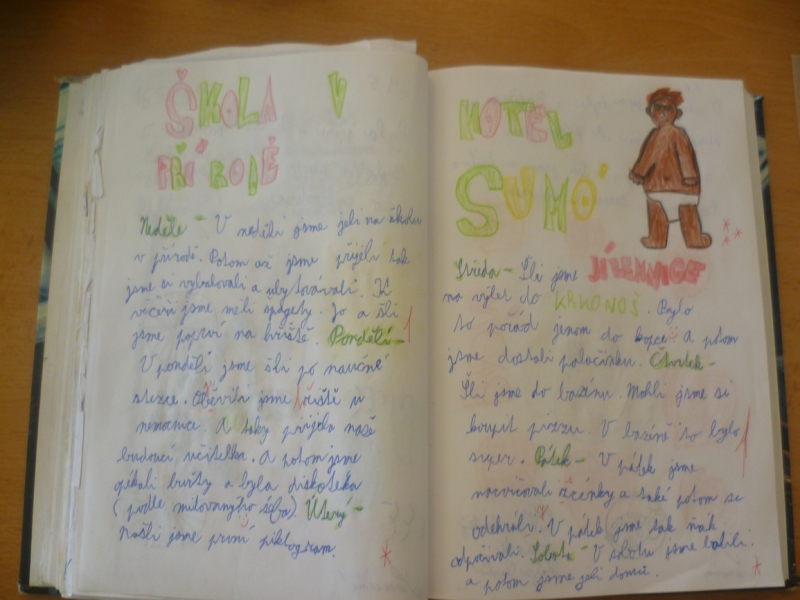 ŠKOLA V
PŘÍRODĚ
Neděle - V neděli jsme jeli na školu
v přírodě. Potom až jsme přijeli tak
jsme se vybalovali a ubytovávali. K
večeři jsme měli špagety. Jo a šli
jsme poprví na hřiště. Pondělí -
V pondělí jsme šli po naučné
stezce. Objevili jsme hřiště u
nemocnice. A taky přijela naše
budoucí učitelka. A potom jsme
pékali buřty a byla diskotéka
(podle milovaného Séba). Úterý -
Našli jsme první piktogram.
HOTEL
SUMÓ
JILEMNICE
Středa - Šli jsme
na výlet do KRKONOŠ. Bylo
to pořád jenom do kopce. A potom
jsme dostali palačinku. Čtvrtek -
Šli jsme do bazénu. Mohli jsme si
koupit pizzu. V bazéně to bylo
super. Pátek - V pátek jsme
nacvičovali scénky a také potom se
odehráli. V pátek jsme tak ňák
odpočívali. Sobota - V sobotu jsme balili
a potom jsme jeli domů.